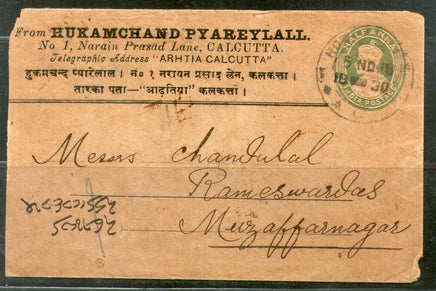 From HUKAMCHAND PYAREYLALL.
No 1, Narain Prasad Lane, CALCUTTA.
Telegraphic Address "ARHTIA CALCUTTA"
हुकमचन्द प्यारेलाल। नं० १ नरायन प्रसाद लेन, कलकत्ता।
तारका पता—"आढ़तिया" कलकत्ता।
HALF ANNA
INDIA POSTAGE
Messrs Chandulal
Rameswardas
Muzaffarnagar